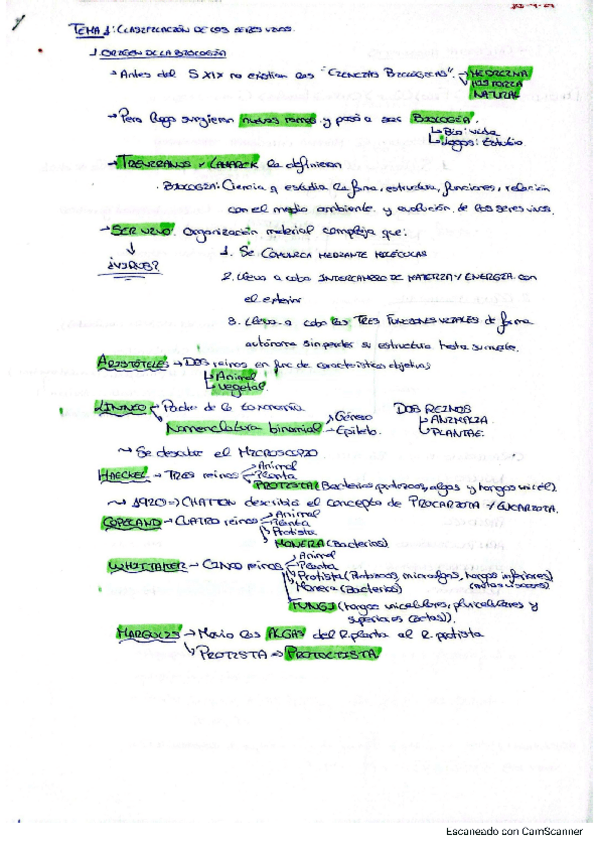 TEMA 1: CLASIFICACIÓN DE LOS SERES VIVOS.
1. ORIGEN DE LA BIOLOGÍA
→ Antes del S XIX no existían las "CIENCIAS BIOLÓGICAS". → MEDICINA
HISTORIA
NATURAL
→ Pero luego surgieron nuevas ramas y pasó a ser BIOLOGÍA.
↳ Bio: vida
↳ Logos: Estudio
→ TREVIRANUS Y LAMARCK la definieron
. BIOLOGÍA: Ciencia q estudia la forma, estructura, funciones, relación
con el medio ambiente y evolución de los seres vivos.
→ SER VIVO: Organización material compleja que:
↓
¿VIRUS?
1. SE COMUNICA MEDIANTE MOLÉCULAS
2. Lleva a cabo INTERCAMBIO DE MATERIA Y ENERGÍA con
el exterior
3. Lleva a cabo las TRES FUNCIONES VITALES de forma
autónoma sin perder su estructura hasta su muerte.
ARISTÓTELES → DOS reinos en func de características objetivas
↳ Animal
↳ Vegetal
LINNEO → Padre de la taxonomía
Nomenclatura binomial → Género
→ Epíteto.
DOS REINOS
↳ ANIMALIA
↳ PLANTAE
↝ Se descubre el MICROSCOPIO
HAECKEL → TRES reinos → Animal
→ Planta
→ PROTISTA (Bacterias, protozoos, algas y hongos unicel).
↝ 1920 => CHATTON describió el concepto de PROCARIOTA Y EUCARIOTA.
COPELAND → CUATRO reinos → Animal
→ Planta
→ Protista
→ MONERA (Bacterias)
WHITTAKER → CINCO reinos → Animal
→ Planta
→ Protista (Protozoos, microalgas, hongos inferiores)
→ Monera (Bacterias)
FUNGI (hongos unicelulares, pluricelulares y
superiores (setas)).
MARGULIS → Movió las ALGAS del R. planta al R. protista
↳ PROTISTA => PROTOCTISTA
Escaneado con CamScanner